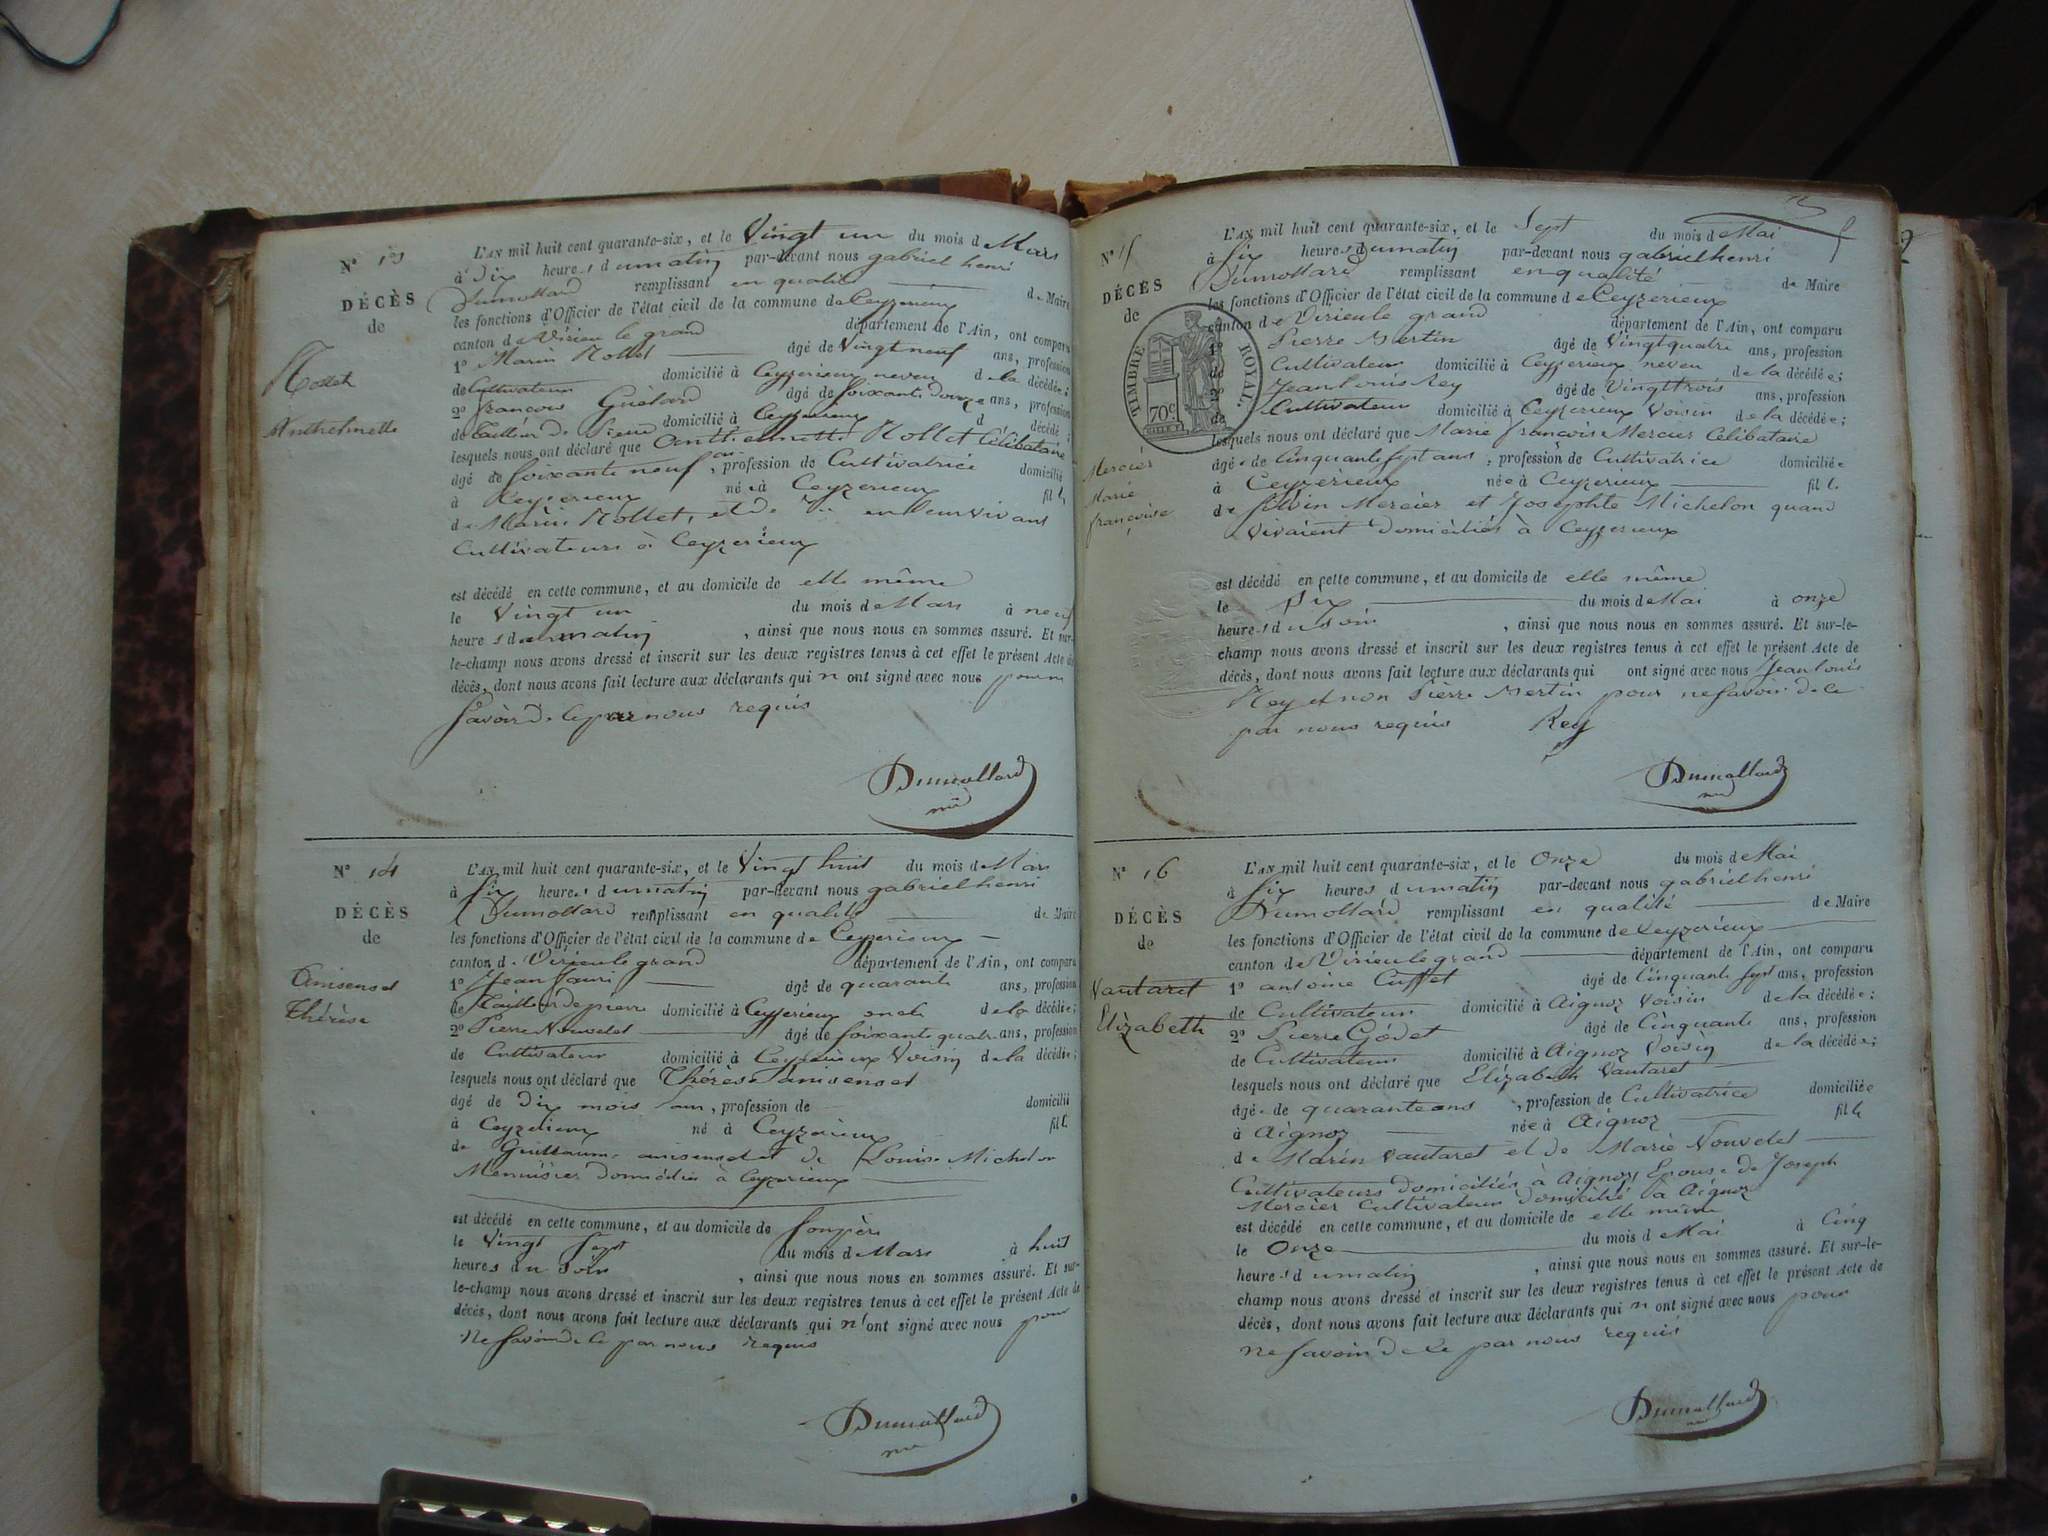 N° 13
DÉCÈS
de
Rollet
Anthelmette
L'AN mil huit cent quarante-six, et le Vingt un du mois de Mars
à dix heures du matin par-devant nous gabriel henri
Dumollard remplissant en qualité de Maire
les fonctions d'Officier de l'état civil de la commune de Ceyzerieux
canton de Virieu le grand département de l'Ain, ont comparu
1° Marin Rollet âgé de Vingt neuf ans, profession
de Cultivateur domicilié à Ceyzerieux neveu de la décédée;
2° françois âgé de Soixante douze ans, profession
de tailleur de domicilié à Ceyzerieux d décédé;
lesquels nous ont déclaré que Anthelmette Rollet Célibataire
âgé de soixante neuf ans, profession de Cultivatrice domicilié
à Ceyzerieux né à Ceyzerieux fille
de Marin Rollet, et de en leur vivant
Cultivateurs à Ceyzerieux
est décédé en cette commune, et au domicile de elle même
le Vingt un du mois de Mars à neuf
heures du matin, ainsi que nous nous en sommes assuré. Et sur-
le-champ nous avons dressé et inscrit sur les deux registres tenus à cet effet le présent Acte de
décès, dont nous avons fait lecture aux déclarants qui n'ont signé avec nous pour ne
savoir de ce par nous requis
Dumollard
N° 14
DÉCÈS
de
Anisensel
Thérèse
L'AN mil huit cent quarante-six, et le Vingt huit du mois de Mars
à six heures du matin par-devant nous gabriel henri
Dumollard remplissant en qualité de Maire
les fonctions d'Officier de l'état civil de la commune de Ceyzerieux
canton de Virieu le grand département de l'Ain, ont comparu
1° Jean âgé de quarante ans, profession
de Tailleur de pierre domicilié à Ceyzerieux oncle de la décédée;
2° Pierre Nouvelet âgé de soixante quatre ans, profession
de Cultivateur domicilié à Ceyzerieux Voisin de la décédée;
lesquels nous ont déclaré que Thérèse anisensel
âgé de dix mois, profession de domicilié
à Ceyzerieux né à Ceyzerieux fille
de Guillaume anisensel et de Louise Michelon
Menuisier domiciliés à Ceyzerieux
est décédé en cette commune, et au domicile de son père
le Vingt Sept du mois de Mars à huit
heures du soir, ainsi que nous nous en sommes assuré. Et sur-
le-champ nous avons dressé et inscrit sur les deux registres tenus à cet effet le présent Acte de
décès, dont nous avons fait lecture aux déclarants qui n'ont signé avec nous pour
ne savoir de ce par nous requis
Dumollard
N° 15
DÉCÈS
de
TIMBRE ROYAL.
70c
Mercier
Marie
françoise
L'AN mil huit cent quarante-six, et le Sept du mois de Mai
à six heures du matin par-devant nous gabriel henri
Dumollard remplissant en qualité de Maire
les fonctions d'Officier de l'état civil de la commune de Ceyzerieux
canton de Virieu le grand département de l'Ain, ont comparu
1° Pierre Mertin âgé de Vingt quatre ans, profession
de Cultivateur domicilié à Ceyzerieux neveu de la décédée;
2° Jean louis Rey âgé de Vingt trois ans, profession
de Cultivateur domicilié à Ceyzerieux Voisin de la décédée;
lesquels nous ont déclaré que Marie françoise Mercier Célibataire
âgée de Cinquante Sept ans, profession de Cultivatrice domiciliée
à Ceyzerieux née à Ceyzerieux fille
de Mercier et Josephte Michelon quand
Vivaient domiciliés à Ceyzerieux
est décédé en cette commune, et au domicile de elle même
le Six du mois de Mai à onze
heures du soir, ainsi que nous nous en sommes assuré. Et sur-le-
champ nous avons dressé et inscrit sur les deux registres tenus à cet effet le présent Acte de
décès, dont nous avons fait lecture aux déclarants qui ont signé avec nous Jean louis
Rey et non Pierre Mertin pour ne savoir de ce
par nous requis Rey
Dumollard
N° 16
DÉCÈS
de
Vautaret
Elizabeth
L'AN mil huit cent quarante-six, et le Onze du mois de Mai
à six heures du matin par-devant nous gabriel henri
Dumollard remplissant en qualité de Maire
les fonctions d'Officier de l'état civil de la commune de Ceyzerieux
canton de Virieu le grand département de l'Ain, ont comparu
1° antoine Cuffet âgé de Cinquante Sept ans, profession
de Cultivateur domicilié à Aignoz Voisin de la décédée;
2° Pierre Godet âgé de Cinquante ans, profession
de Cultivateur domicilié à Aignoz Voisin de la décédée;
lesquels nous ont déclaré que Elizabeth Vautaret
âgée de quarante ans, profession de Cultivatrice domiciliée
à Aignoz née à Aignoz fille
de Marin Vautaret et de Marie Nouvelet
Cultivateurs domiciliés à Aignoz Epouse de Joseph
Mercier Cultivateur domicilié à Aignoz
est décédé en cette commune, et au domicile de elle même
le Onze du mois de Mai à Cinq
heures du matin, ainsi que nous nous en sommes assuré. Et sur-le-
champ nous avons dressé et inscrit sur les deux registres tenus à cet effet le présent Acte de
décès, dont nous avons fait lecture aux déclarants qui n'ont signé avec nous pour
ne savoir de ce par nous requis
Dumollard